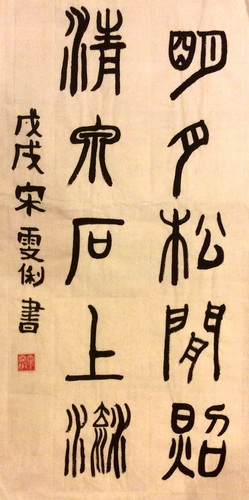 明月松間照
清泉石上流
戊戌宋雯俐書